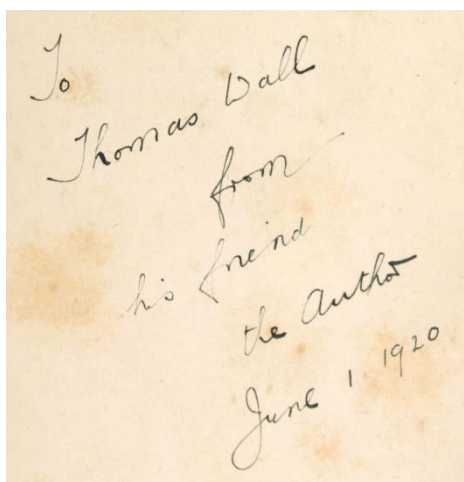 To
Thomas Wall
from
his friend
the Author
June 1 1920